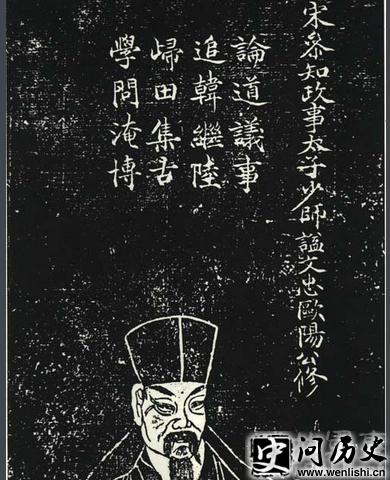 宋叅知政事太子少師謚文忠歐陽公修
論道議事
追韓繼陸
歸田集古
學問淹博
史问历史
www.wenlishi.cn